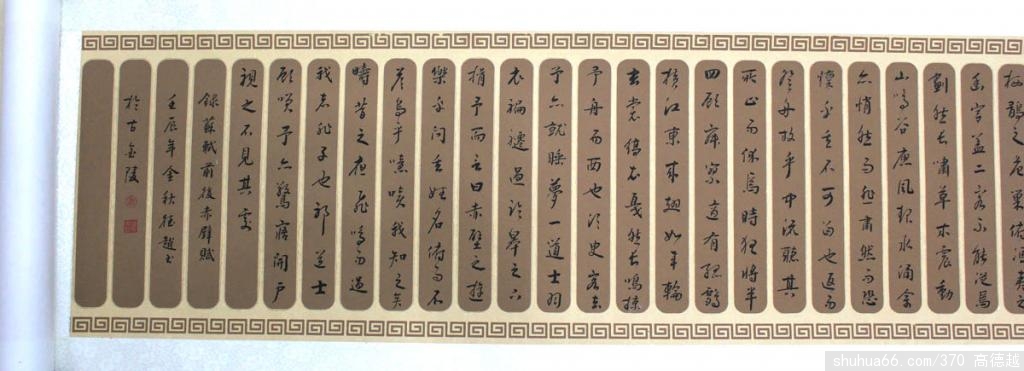 栖鶻之危巢俯馮夷之
幽宫盖二客不能從焉
劃然長嘯草木震動
山鳴谷應風起水涌余
亦悄然而悲肅然而恐
懍乎其不可留也返而
登舟放乎中流聽其
所止而休焉時夜將半
四顧寂寥適有孤鶴
横江東來翅如車輪
玄裳縞衣戛然長鳴掠
予舟而西也須臾客去
予亦就睡夢一道士羽
衣蹁躚過臨皋之下
揖予而言曰赤壁之遊
樂乎問其姓名俯而不
答嗚乎噫嘻我知之矣
疇昔之夜飛鳴而過
我者非子也邪道士
顧笑予亦驚寤開戶
視之不見其處
録蘇軾前後赤壁賦
壬辰年金秋德越書
於古金陵
shuhua66.com/370 高德越